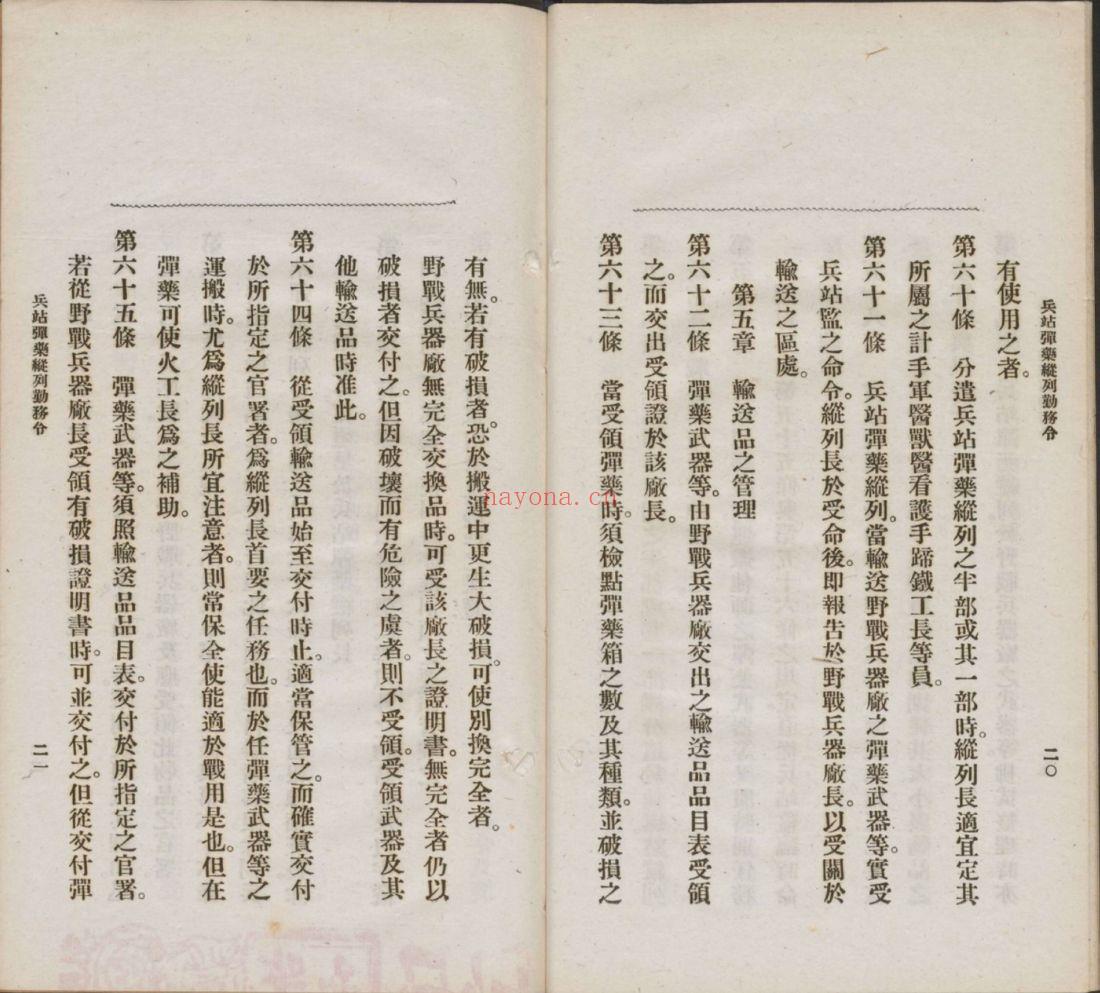 兵站彈藥縱列勤務令
二〇
有使用之者。
第六十條　分遣兵站彈藥縱列之半部或其一部時。縱列長適宜定其
所屬之計手軍醫獸醫看護手蹄鐵工長等員。
第六十一條　兵站彈藥縱列。當輸送野戰兵器廠之彈藥武器等。實受
兵站監之命令。縱列長於受命後。即報告於野戰兵器廠長。以受關於
輸送之區處。
第五章　輸送品之管理
第六十二條　彈藥武器等。由野戰兵器廠交出之輸送品品目表受領
之。而交出受領證於該廠長。
第六十三條　當受領彈藥時。須檢點彈藥箱之數及其種類。並破損之
有無。若有破損者。恐於搬運中更生大破損。可使別換完全者。
野戰兵器廠無完全交換品時。可受該廠長之證明書。無完全者仍以
破損者交付之。但因破壞而有危險之虞者。則不受領。受領武器及其
他輸送品時准此。
第六十四條　從受領輸送品始至交付時止。適當保管之。而確實交付
於所指定之官署者。爲縱列長首要之任務也。而於任彈藥武器等之
運搬時。尤爲縱列長所宜注意者。則常保全使能適於戰用是也。但在
彈藥可使火工長爲之補助。
第六十五條　彈藥武器等。須照輸送品品目表。交付於所指定之官署。
若從野戰兵器廠長受領有破損證明書時。可並交付之。但從交付彈
兵站彈藥縱列勤務令
二一
nayona.cn